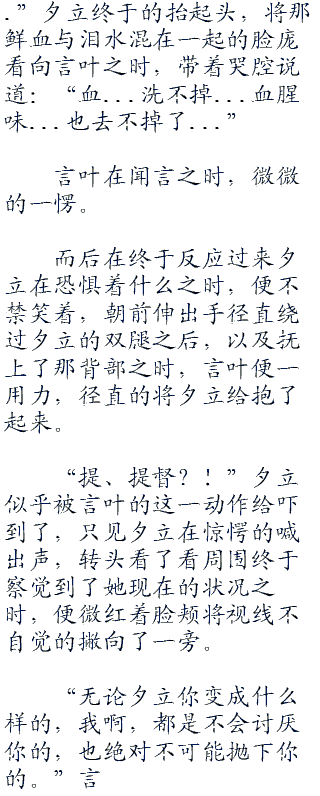 .”夕立终于的抬起头，将那
鲜血与泪水混在一起的脸庞
看向言叶之时，带着哭腔说
道：“血...洗不掉...血腥
味...也去不掉了...”
言叶在闻言之时，微微
的一愣。
而后在终于反应过来夕
立在恐惧着什么之时，便不
禁笑着，朝前伸出手径直绕
过夕立的双腿之后，以及抚
上了那背部之时，言叶便一
用力，径直的将夕立给抱了
起来。
“提、提督？！”夕立
似乎被言叶的这一动作给吓
到了，只见夕立在惊愕的喊
出声，转头看了看周围终于
察觉到了她现在的状况之
时，便微红着脸颊将视线不
自觉的撇向了一旁。
“无论夕立你变成什么
样的，我啊，都是不会讨厌
你的，也绝对不可能抛下你
的。”言